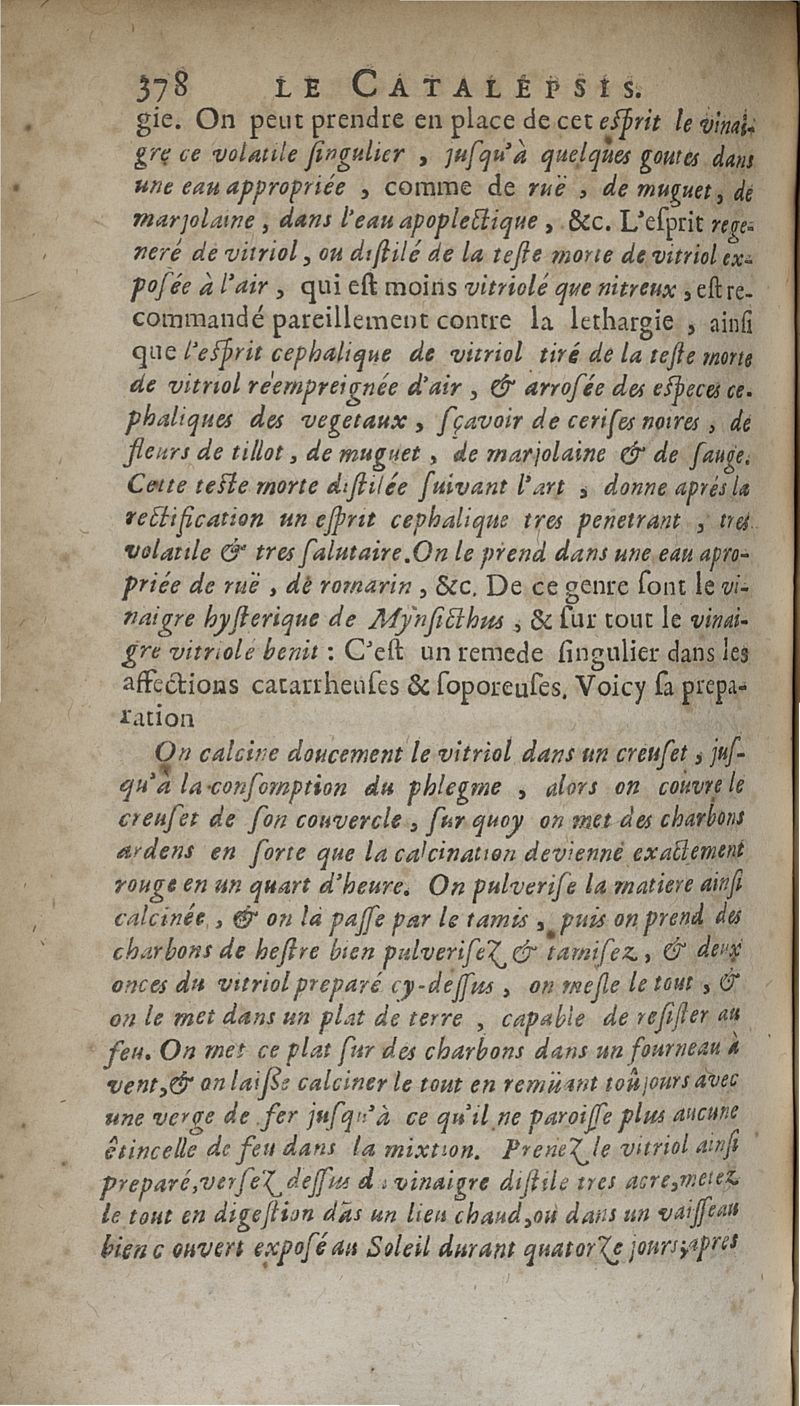 378 LE CATALEPSIS.
gie. On peut prendre en place de cet eſprit le vinai-
gre ce volatile ſingulier , juſqu'à quelques goutes dans
une eau appropriée , comme de ruë , de muguet, de
marjolaine , dans l'eau apoplectique , &c. L'eſprit rege-
neré de vitriol , ou diſtilé de la teſte morte de vitriol ex-
poſée à l'air , qui eſt moins vitriolé que nitreux , eſt re-
commandé pareillement contre la lethargie , ainſi
que l'eſprit cephalique de vitriol tiré de la teſte morte
de vitriol réempreignée d'air , & arroſée des eſpeces ce-
phaliques des vegetaux , ſçavoir de ceriſes noires , de
fleurs de tillot , de muguet , de marjolaine & de ſauge.
Cette teſte morte diſtilée ſuivant l'art , donne aprés la
rectification un eſprit cephalique tres penetrant , tres
volatile & tres ſalutaire. On le prend dans une eau apro-
priée de ruë , de romarin , &c. De ce genre ſont le vi-
naigre hyſterique de Mynſicthus , & ſur tout le vinai-
gre vitriolé benit : C'eſt un remede ſingulier dans les
affections catarrheuſes & ſoporeuſes. Voicy ſa prepa-
ration
On calcine doucement le vitriol dans un creuſet , juſ-
qu'à la conſomption du phlegme , alors on couvre le
creuſet de ſon couvercle , ſur quoy on met des charbons
ardens en ſorte que la calcination devienne exactement
rouge en un quart d'heure. On pulveriſe la matiere ainſi
calcinée , & on la paſſe par le tamis , puis on prend des
charbons de heſtre bien pulveriſez & tamiſez , & deux
onces du vitriol preparé cy-deſſus , on meſle le tout , &
on le met dans un plat de terre , capable de reſiſter au
feu. On met ce plat ſur des charbons dans un fourneau à
vent, & on laiſſe calciner le tout en remüant toûjours avec
une verge de fer juſqu'à ce qu'il ne paroiſſe plus aucune
êtincelle de feu dans la mixtion. Prenez le vitriol ainſi
preparé, verſez deſſus d : vinaigre diſtile tres acre, metez
le tout en digeſtion dãs un lieu chaud, ou dans un vaiſſeau
bien c ouvert expoſé au Soleil durant quatorze jours, apres